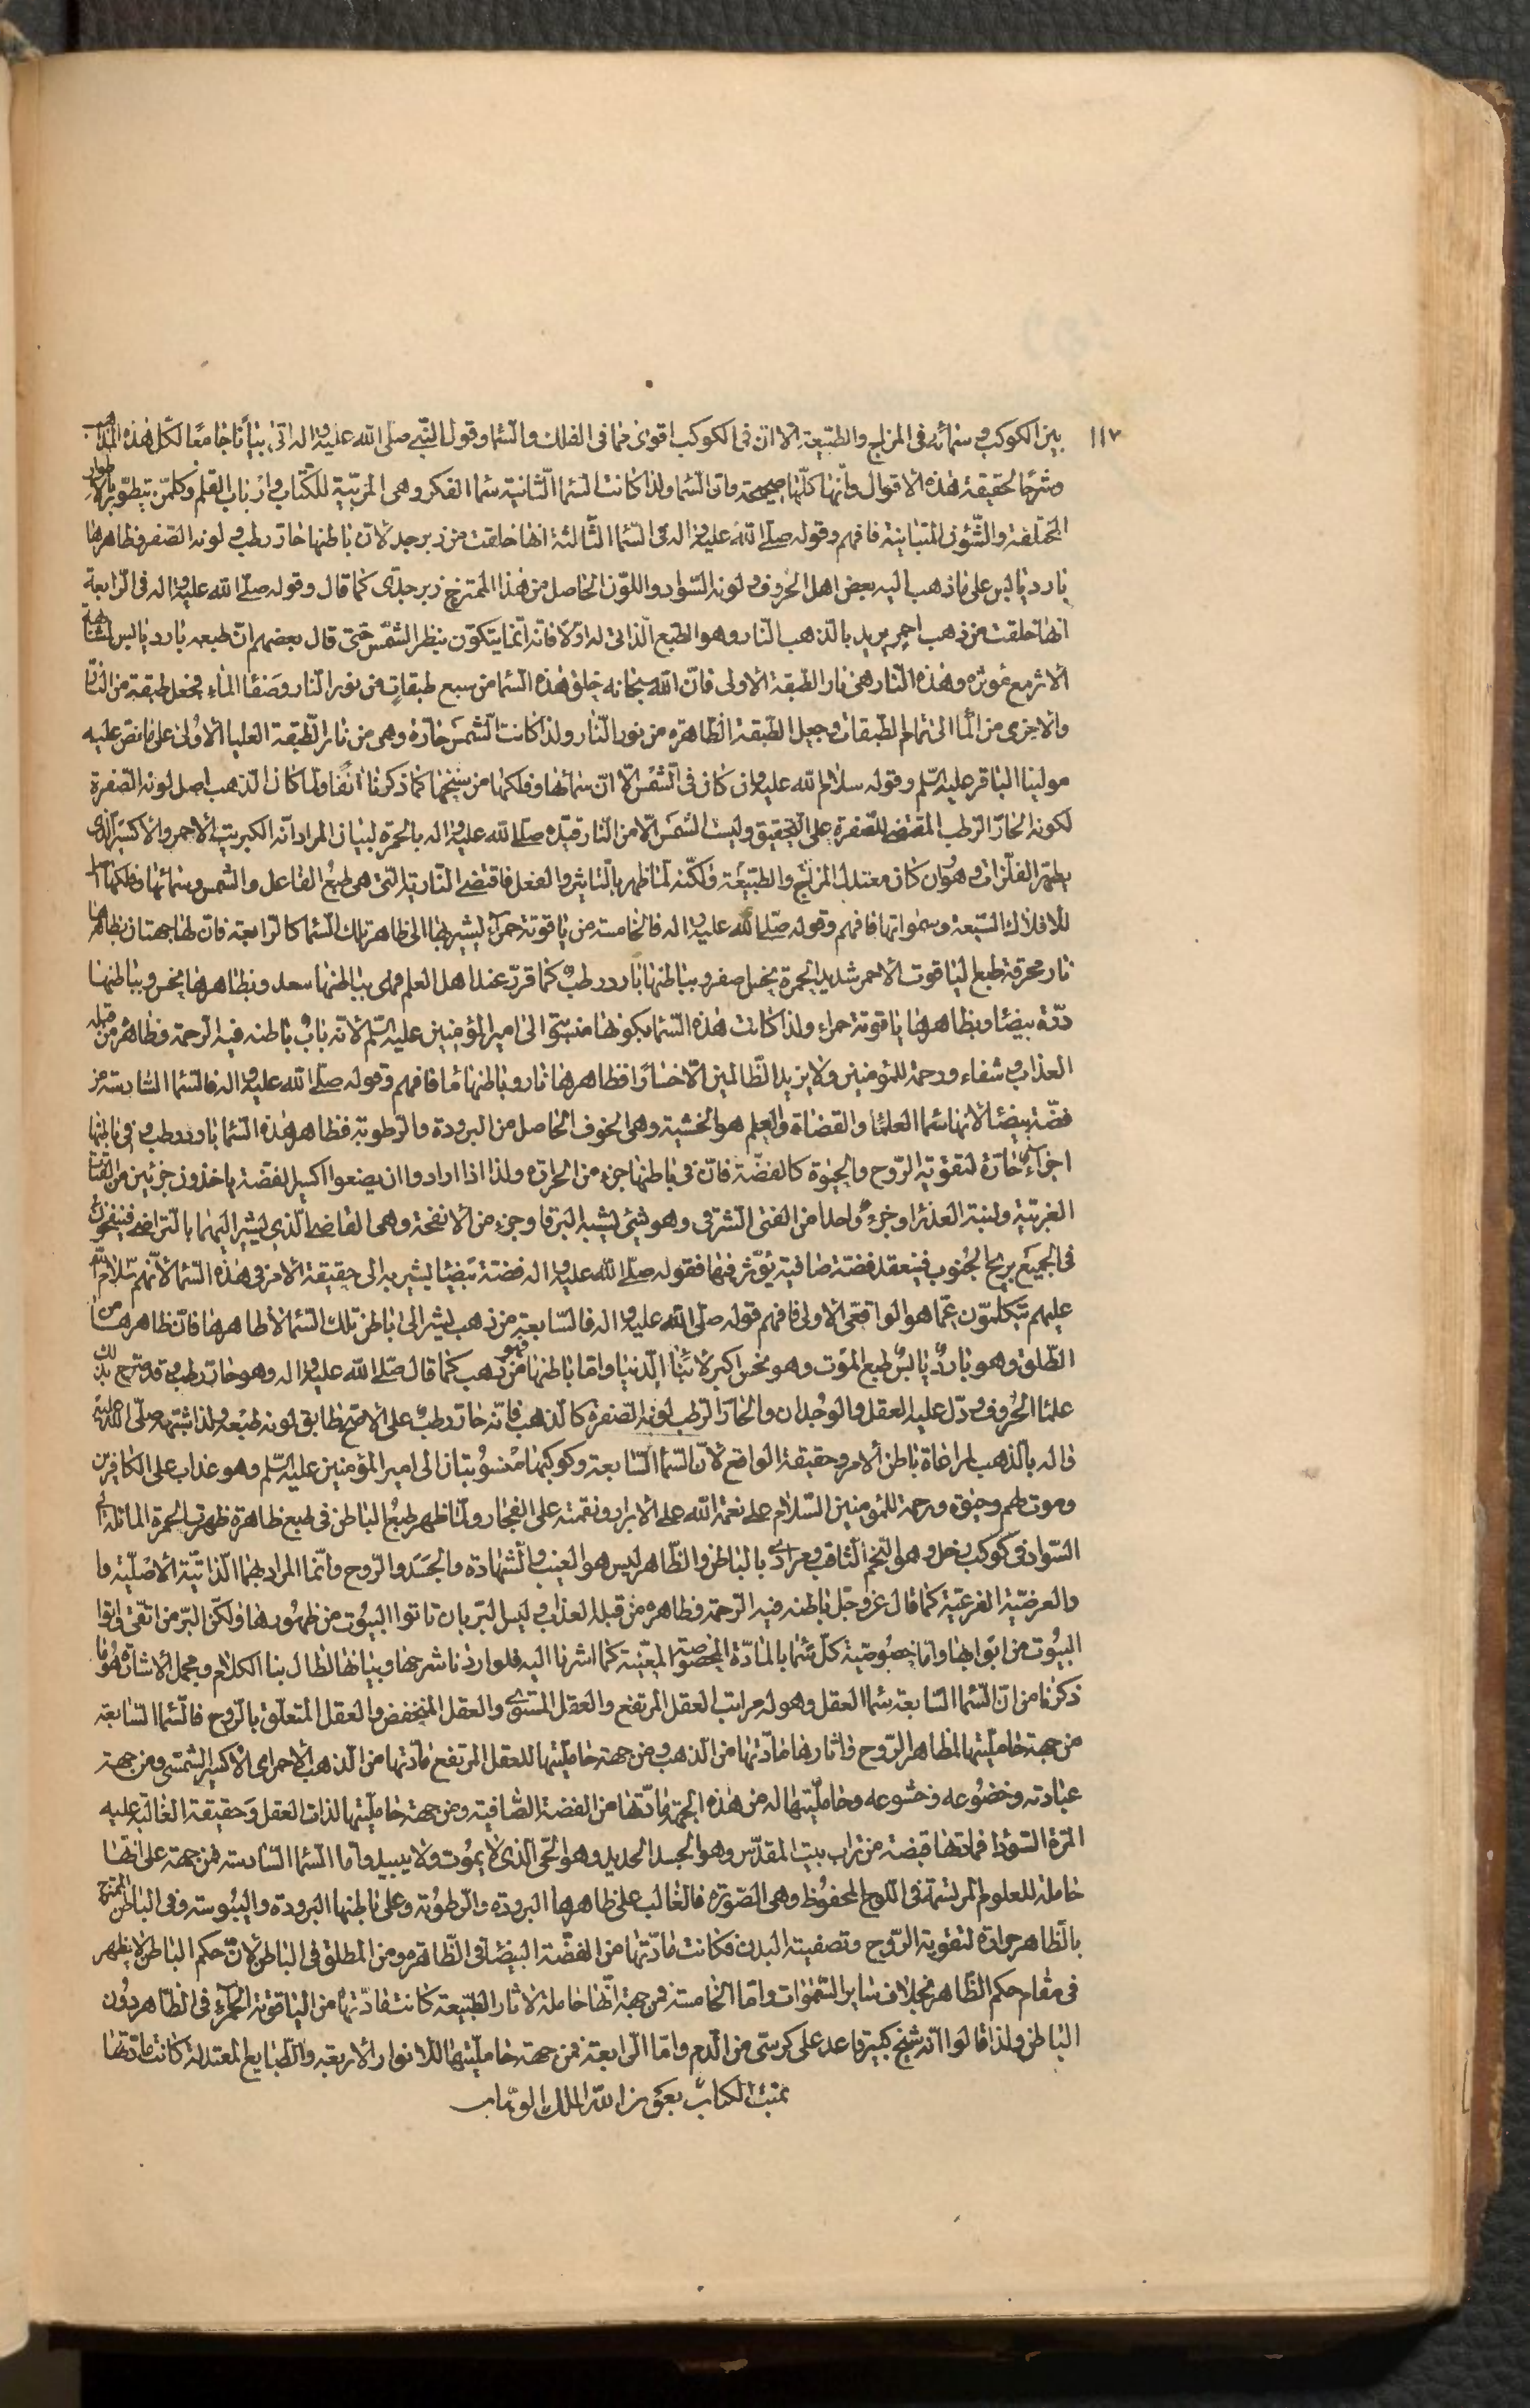 ١١٧
بين الكوكب وسمائه فى المزاج والطبيعة الا ان فى الكوكب اقوى مما فى الفلك والسماء وقول النبى صلى الله عليه واله اتى بيانا جامعا لكل هذه المذاهب
وشرحا لحقيقة هذه الاقوال وانها كلها صحيحة فان السماء ولذا كانت السماء الثانية سماء الفكر وهى المربية للكتاب وارباب القلم وكلمن يتطور بالاطوار
المختلفة والشؤن المتباينة فافهم وقوله صلى الله عليه واله فى السماء الثالثة انها خلقت من زبرجد لان باطنها حار رطب ولونه الصفر وظاهرها
بارد يابس على ما ذهب اليه بعض اهل الحروف ولونه السواد واللون الحاصل من هذا الممتزج زبرجدى كما قال وقوله صلى الله عليه واله فى الرابعة
انها خلقت من ذهب احمر يريد بالذهب النار وهو الطبع الذاتى له اولا فانه انما يتكون بنظر الشمس حتى قال بعضهم ان طبعه بارد يابس
الاثر مع مؤثره وهذه النار هى نار الطبقة الاولى فان الله سبحانه خلق هذه السماء من سبع طبقات من نور النار وصفاء الماء فجعل طبقة من النار
والاخرى من الماء الى تمام الطبقات وجعل الطبقة الظاهرة من نور النار ولذا كانت الشمس حارة وهى من نار الطبقة العليا الاولى على ما نص عليه
مولينا الباقر عليه السلم وقوله سلام الله عليه وان كان فى الشمس الا ان سمائها وفلكها من سنخها كما ذكرنا انفا ولما كان الذهب اصل لونه الصفرة
لكونه الحار الرطب المقتضى للصفرة على التحقيق وليست الشمس الا من النار قيده صلى الله عليه واله بالحمرة لبيان المراد انه الكبريت الاحمر والاكسير الذى
يطهر الفلزات وهو وان كان معتدل المزاج والطبيعة ولكنه لما ظهر بالتاثير والفعل فاقتضى النارية التى هى طبع الفاعل والشمس وسمائها وفلكها
للافلاك السبعة وسمواتها فافهم وقوله صلى الله عليه واله فالخامسة من ياقوتة حمراء ليشير بها الى ظاهر تلك السماء كالرابعة فان لها جهتان بظاهرها
نار محرقة طبع الياقوت الاحمر شديد الحمرة بخس صفر وبباطنها بارد رطب كما قرر عند اهل العلم فهى بباطنها سعد وبظاهرها نحس وبباطنها
درة بيضاء وبظاهرها ياقوتة حمراء ولذا كانت هذه السماء بكونها منسوبة الى امير المؤمنين عليه السلم لانه باب باطنه فيه الرحمة وظاهره من قبله
العذاب وشفاء ورحمة للمؤمنين ولا يزيد الظالمين الا خسارا فظاهرها نار وباطنها ماء فافهم وقوله صلى الله عليه واله فالسماء السادسة من
فضة بيضاء لانها سماء العلماء والقضاة والعلم هو الخشية وهى الخوف الحاصل من البرودة والرطوبة فظاهر هذه السماء بارد رطب وفى باطنها
اجزاء حارة لتقوية الروح والحيوة كالفضة فان فى باطنها جزء من الحرارة ولذا اذا ارادوا ان يضعوا اكسير الفضة ياخذون جزئين من الفتاة
الغربية ولبنة العذراء وجزء واحدا من الفتى الشرقى وهو شئ يشبه البرقا وجزء من الانفحة وهى القاضى الذى يشير اليهما بالتراضى فينفخون
فى الجميع بريح الجنوب فينعقد فضة صافية يؤثر فيها فقوله صلى الله عليه واله فضة بيضاء ليشير به الى حقيقة الامر فى هذه السماء لانهم سلام الله
عليهم يتكلمون عما هو الواقعى الاولى فافهم قوله صلى الله عليه واله فالسابعة من ذهب ليشير الى باطن تلك السماء لا ظاهرها فان ظاهرها من
الطلق وهو بارد يابس طبع الموت وهو نحس اكبر لابناء الدنيا واما باطنها فهو من ذهب كما قال صلى الله عليه واله وهو حار رطب وقد صرح بذلك
علماء الحروف ودل عليه العقل والوجدان والحار الرطب لونه الصفرة كالذهب فانه حار رطب على الاصح طابق لونه طبعه ولذا شبهه صلى الله عليه
واله بالذهب لمراعاة باطن الامر وحقيقة الواقع لان السماء السابعة وكوكبها منسوبتان الى امير المؤمنين عليه السلم وهو عذاب على الكافرين
وموت لهم وحيوة ورحمة للمؤمنين السلام على نعمة الله على الابرار ونقمته على الفجار ولما ظهر طبع الباطن فى طبع ظاهرة ظهرت الحمرة المائلة الى
السواد فى كوكب زحل وهو النجم الثاقب ومرادى بالباطن والظاهر ليس هو الغيب والشهادة والجسد والروح وانما المراد بهما الذاتية الاصلية و
والعرضية الفرعية كما قال عز وجل باطنه فيه الرحمة وظاهره من قبله العذاب وليس البر بان تاتوا البيوت من ظهورها ولكن البر من اتقى واتوا
البيوت من ابوابها واما خصوصية كل سماء بالمادة المخصوصة المعينة كما اشرنا اليه فلو اردنا شرحها وبيانها لطال بنا الكلام ومجمل الاشارة هو ما
ذكرنا من ان السماء السابعة سماء العقل وهو له مراتب العقل المرتفع والعقل المستوى والعقل المنخفض والعقل المتعلق بالروح فالسماء السابعة
من جهة حامليتها لمظاهر الروح واثارها مادتها من الذهب ومن جهة حامليتها للعقل المرتفع مادتها من الذهب الاحمر اى الاكسير الشمسى ومن جهة
عبادته وخضوعه وخشوعه وحامليتها له من هذه الجهة مادتها من الفضة الصافية ومن جهة حامليتها لذات العقل وحقيقة الغالبة عليه
المرة السوداء فمادتها قبضة من تراب بيت المقدس وهو الجسد الجديد وهو الحى الذى لا يموت ولا يبيد واما السماء السادسة فمن جهة على انها
حاملة للعلوم المرتسمة فى اللوح المحفوظ وهى الصورة فالغالب على ظاهرها البرودة والرطوبة وعلى باطنها البرودة واليبوسة وفى الباطن الممتزج
بالظاهر حرارة لتقوية الروح وتصفية البدن فكانت مادتها من الفضة البيضاء فى الظاهر ومن المطلق فى الباطن لان حكم الباطن لا يظهر
فى مقام حكم الظاهر بخلاف ساير السموات واما الخامسة فمن جهة انها حاملة لاثار الطبيعة كانت مادتها من الياقوتة الحمراء فى الظاهر دون
الباطن ولذا قالوا انه شيخ كبير قاعد على كرسى من الدم واما الرابعة فمن جهة حامليتها للانوار الاربعة والطبايع المعتدلة كانت مادتها
تمت الكتاب بعون الله الملك الوهاب